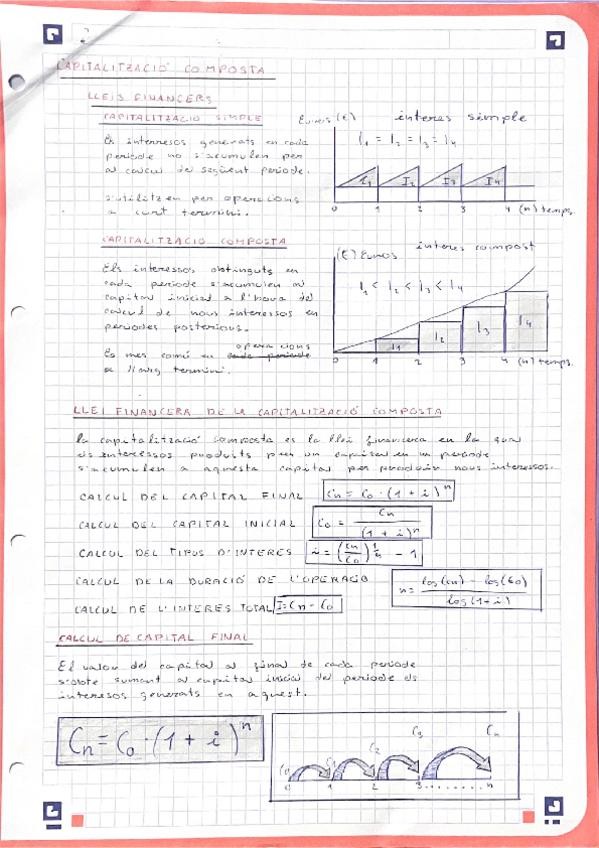 CAPITALITZACIÓ COMPOSTA
LLEIS FINANCERS
CAPITALITZACIO SIMPLE
Els interresos generats en cada
periode no s'acumulen per
al calcul del següent periode.
s'utilitzen per operacions
a curt termini.
Euros (€) interes simple
I₁ = I₂ = I₃ = I₄
I₁ I₂ I₃ I₄
0 1 2 3 4 (n) temps.
CAPITALITZACIO COMPOSTA
Els interessos obtinguts en
cada periode s'acumulen al
capital inicial a l'hora del
calcul de nous interessos en
periodes posteriors.
operacions
Es mes comú en cada periode
a llarg termini.
(€) Euros interes compost
I₁ < I₂ < I₃ < I₄
I₁ I₂ I₃ I₄
0 1 2 3 4 (n) temps.
LLEI FINANCERA DE LA CAPITALITZACIÓ COMPOSTA
la capitalització composta es la llei financera en la qual
els interessos produits per un capital en un periode
s'acumulen a aquesta capital per produir nous interessos.
CALCUL DEL CAPITAL FINAL Cn = C₀ · (1 + i)ⁿ
CALCUL DEL CAPITAL INICIAL C₀ = Cn / (1 + i)ⁿ
CALCUL DEL TIPUS D'INTERES i = (Cn/C₀)^(1/n) - 1
CALCUL DE LA DURACIÓ DE L'OPERACIO n = log(Cn) - log(C₀) / log(1+i)
CALCUL DE L'INTERES TOTAL I = Cn - C₀
CALCUL DE CAPITAL FINAL
El valor del capital al final de cada periode
s'obte sumant al capital inicial del periode els
interesos generats en aquest.
Cn = C₀ · (1 + i)ⁿ
C₀ C₁ C₂ C₃ Cn
0 1 2 3 ........ n